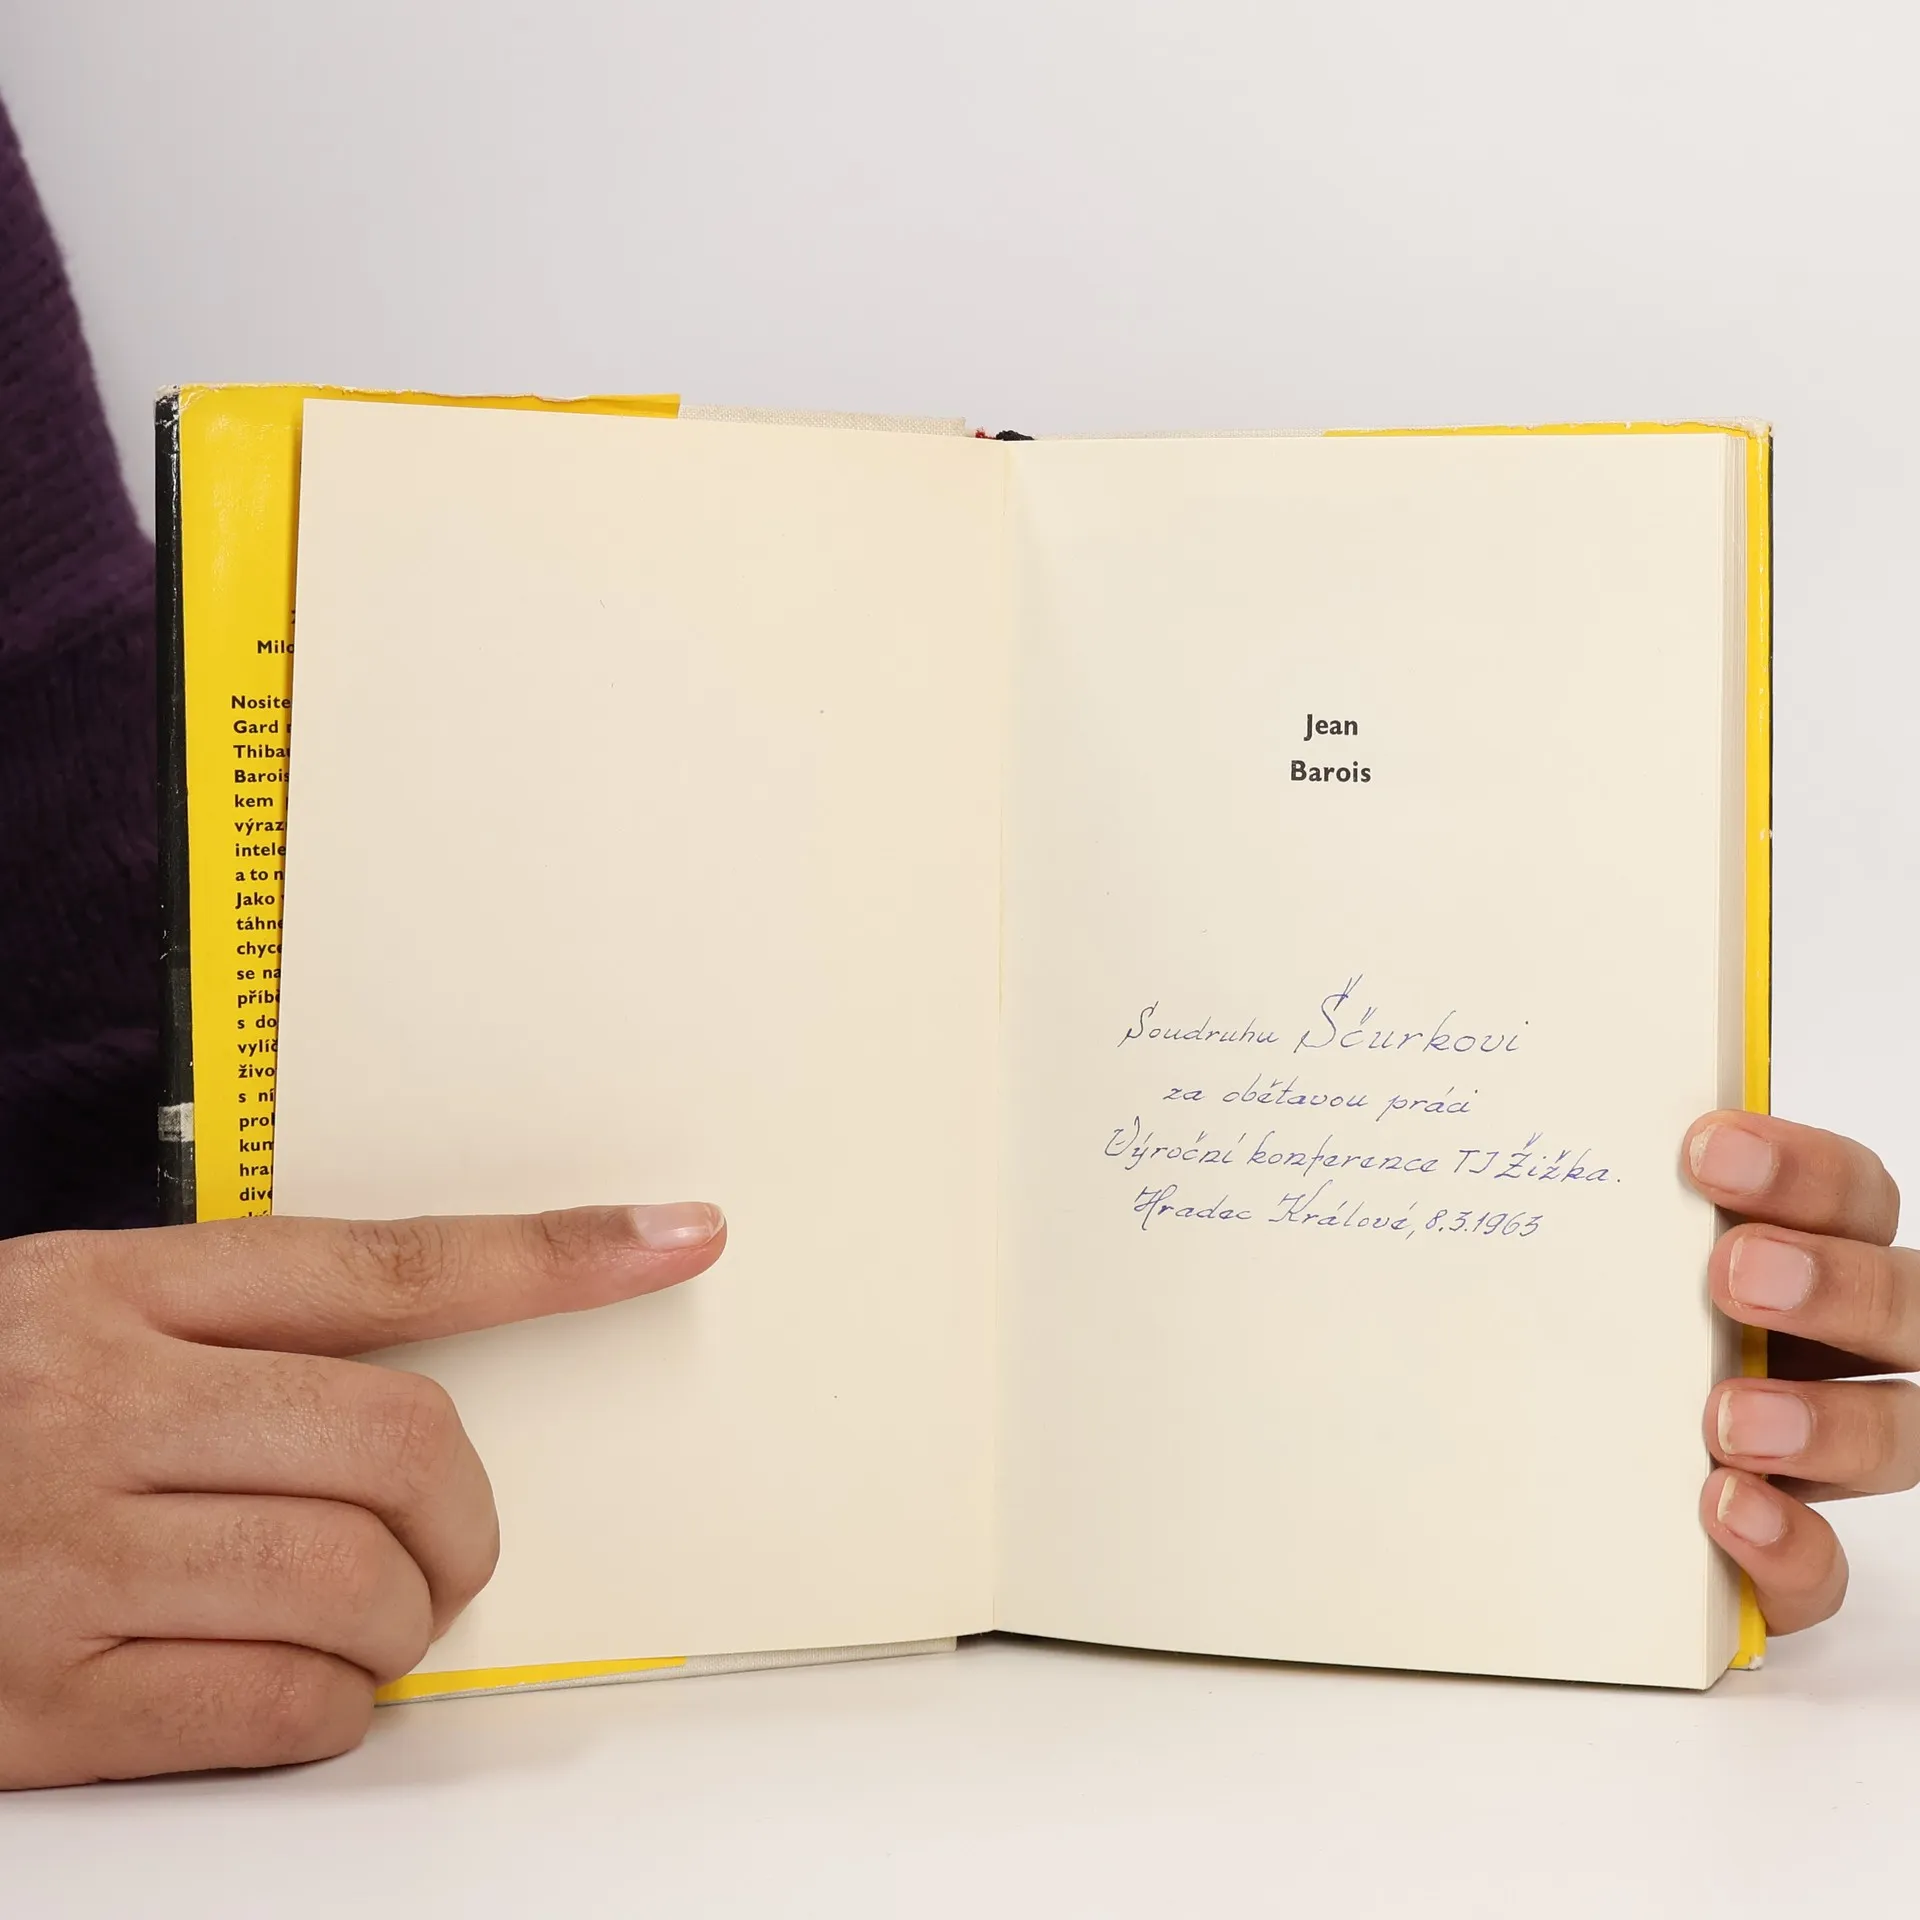 Milo
Nosite
Gard
Thiba
Barois
kem
výraz
intele
a to n
Jako
táhne
chyce
se na
příbě
s do
vylíč
živo
s ní
prol
kum
hra
divé
Jean
Barois
Soudruhu Ščurkovi
za obětavou práci
Výroční konference TJ Žižka.
Hradec Králové, 8.3.1963